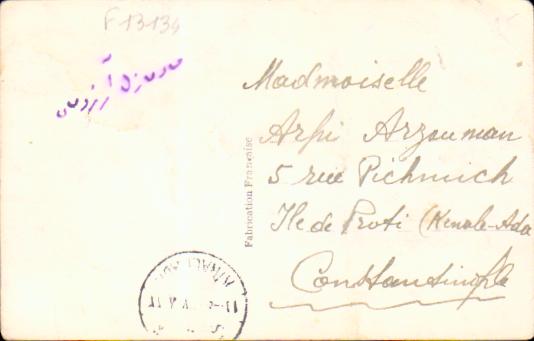 F 13134
Madmoiselle
Arpi Arzouman
5 rue Pichmich
Ile de Proti (Kenale-Ada
Constantinople
Fabrication Française